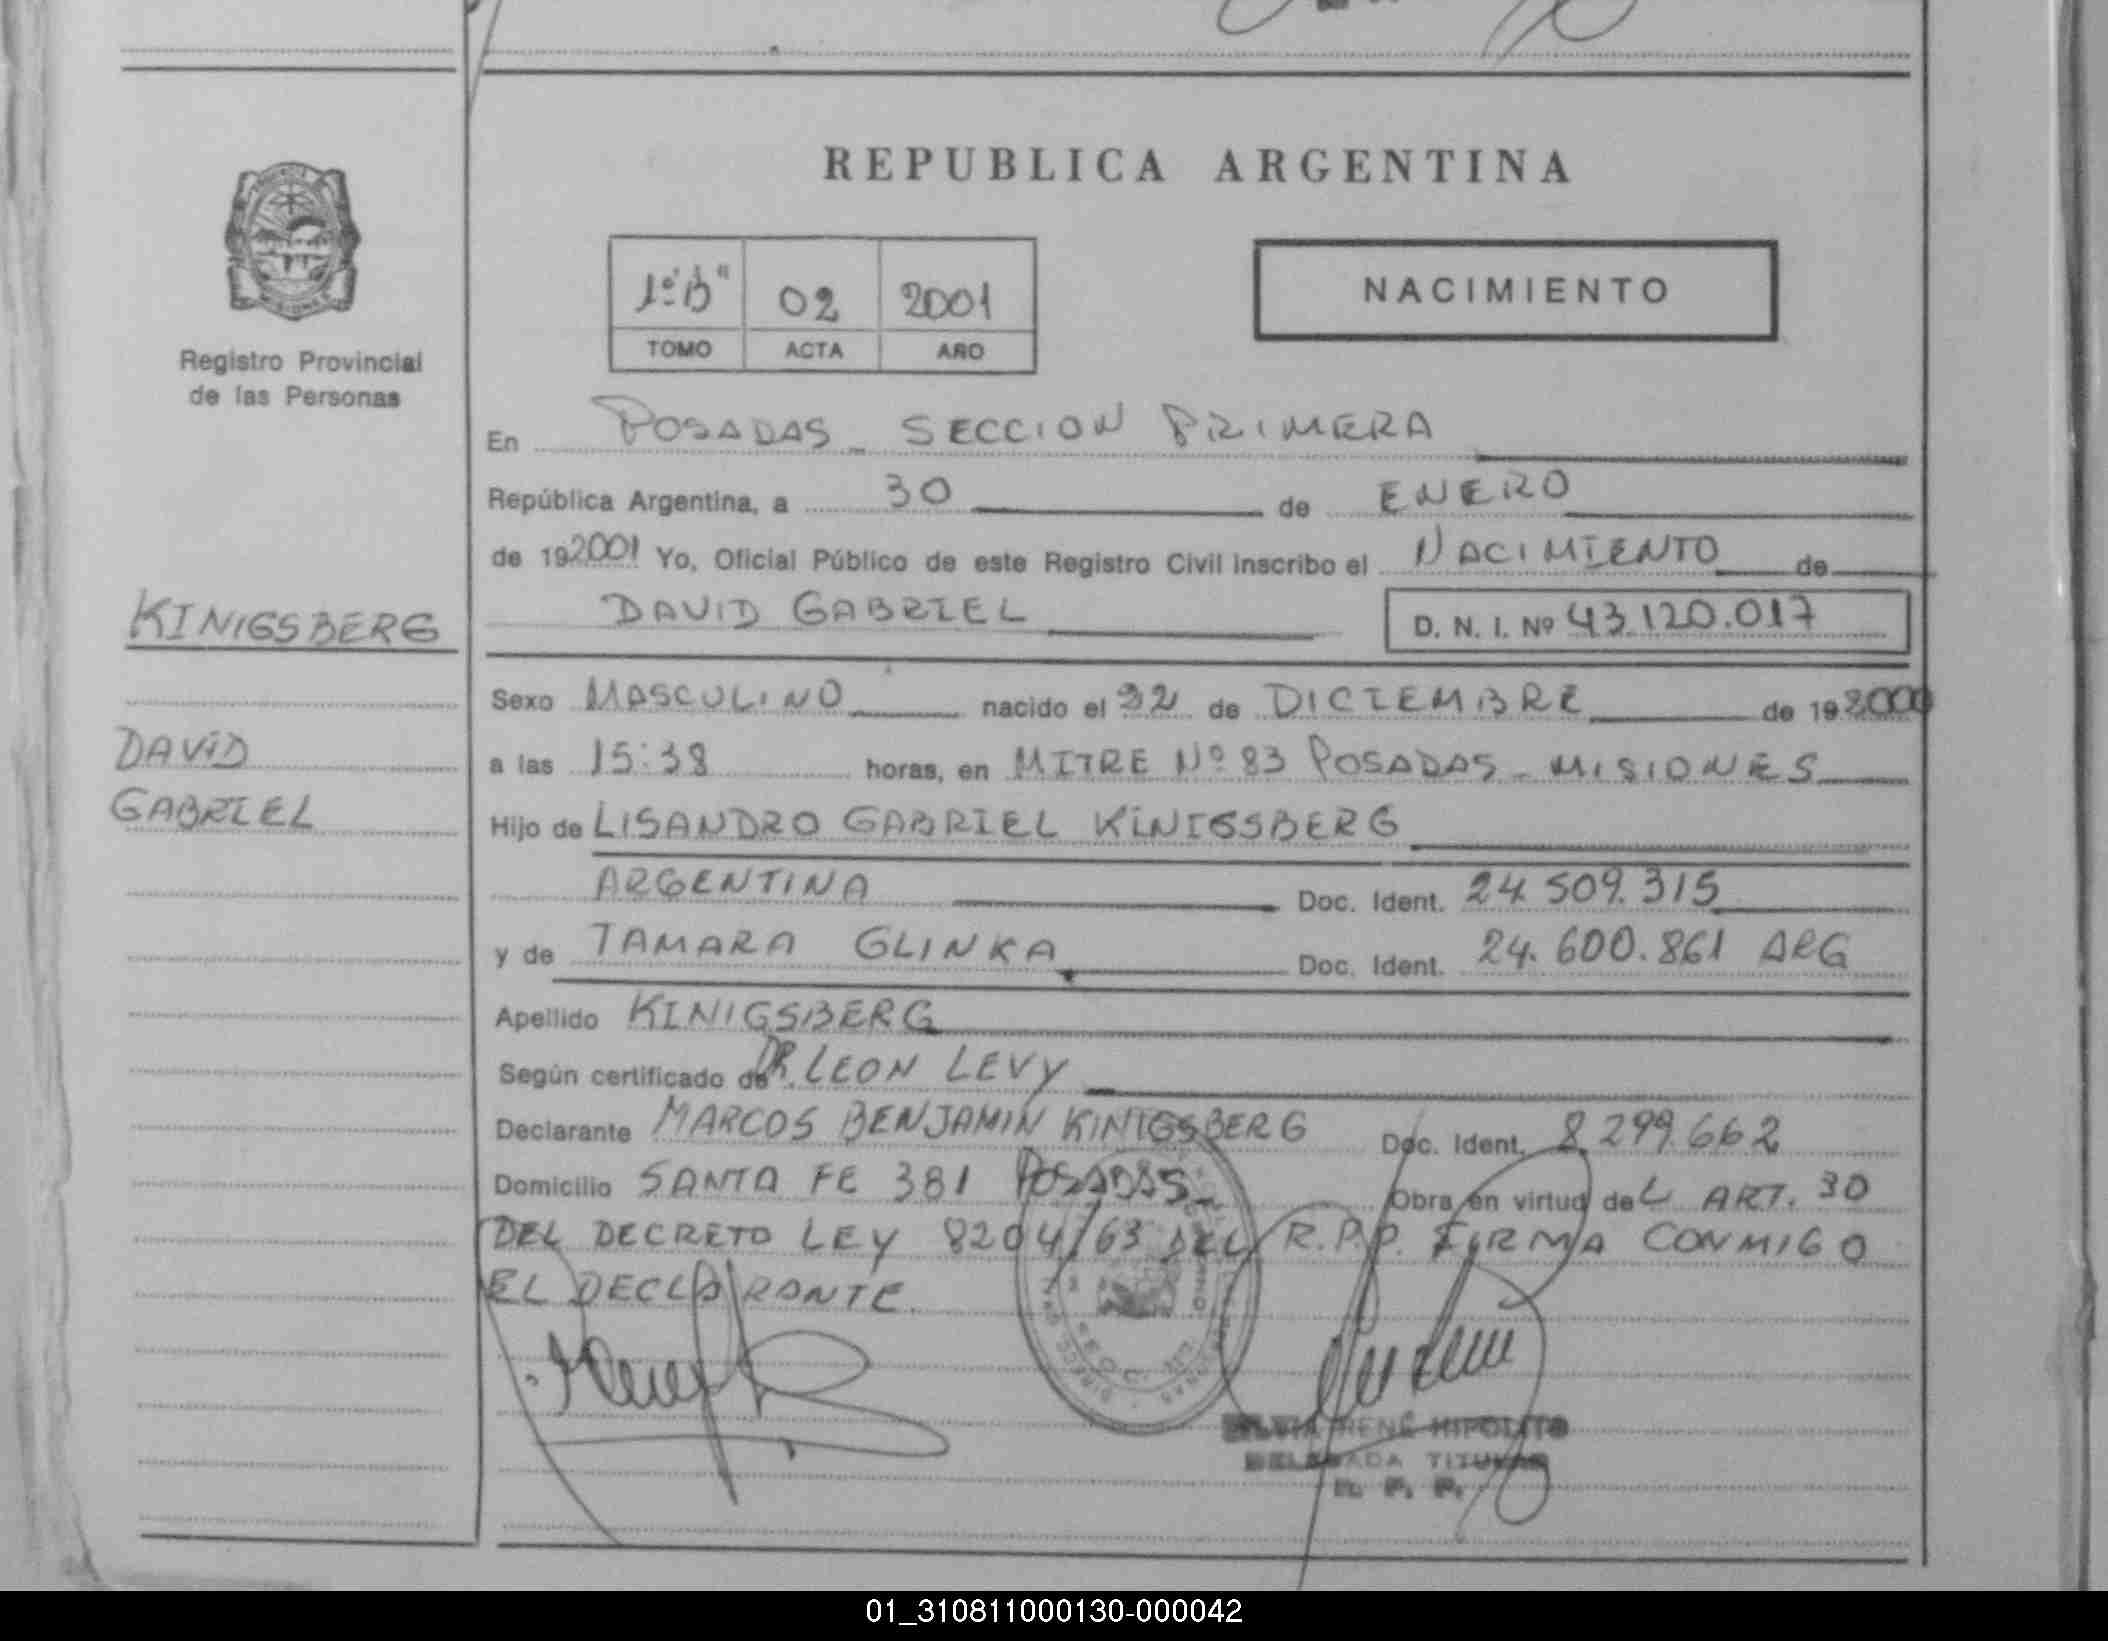 REPUBLICA ARGENTINA
1º "B" 02 2001
TOMO ACTA AÑO
NACIMIENTO
Registro Provincial
de las Personas
KINIGSBERG
DAVID
GABRIEL
En POSADAS - SECCION PRIMERA
República Argentina, a 30 de ENERO
de 192001 Yo, Oficial Público de este Registro Civil inscribo el NACIMIENTO de
DAVID GABRIEL D. N. I. Nº 43.120.017
Sexo MASCULINO nacido el 22 de DICIEMBRE de 192000
a las 15:38 horas, en MITRE Nº 83 POSADAS - MISIONES
Hijo de LISANDRO GABRIEL KINIGSBERG
ARGENTINA Doc. Ident. 24.509.315
y de TAMARA GLINKA Doc. Ident. 24.600.861 ARG
Apellido KINIGSBERG
Según certificado de DR. LEON LEVY
Declarante MARCOS BENJAMIN KINIGSBERG Doc. Ident. 8.299.662
Domicilio SANTA FE 381 POSADAS - Obra en virtud deL ART. 30
DEL DECRETO LEY 8204/63 DEL R.P.P. FIRMA CONMIGO
EL DECLARANTE.
SILVIA RENÉ HIPOLITO
DELEGADA TITULAR
R. P. P.
01_310811000130-000042